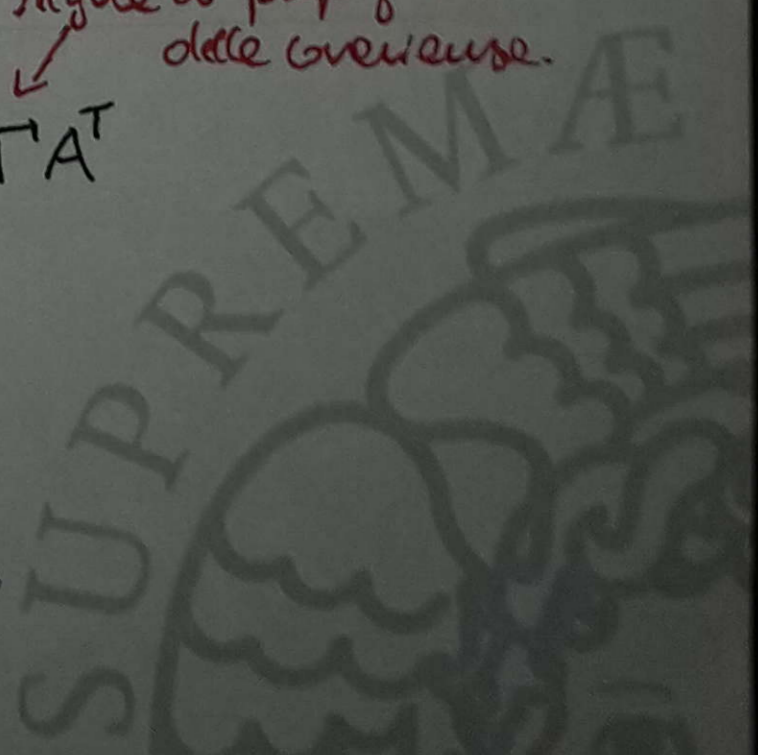 delle covarianze.
A^T
SUPREMÆ